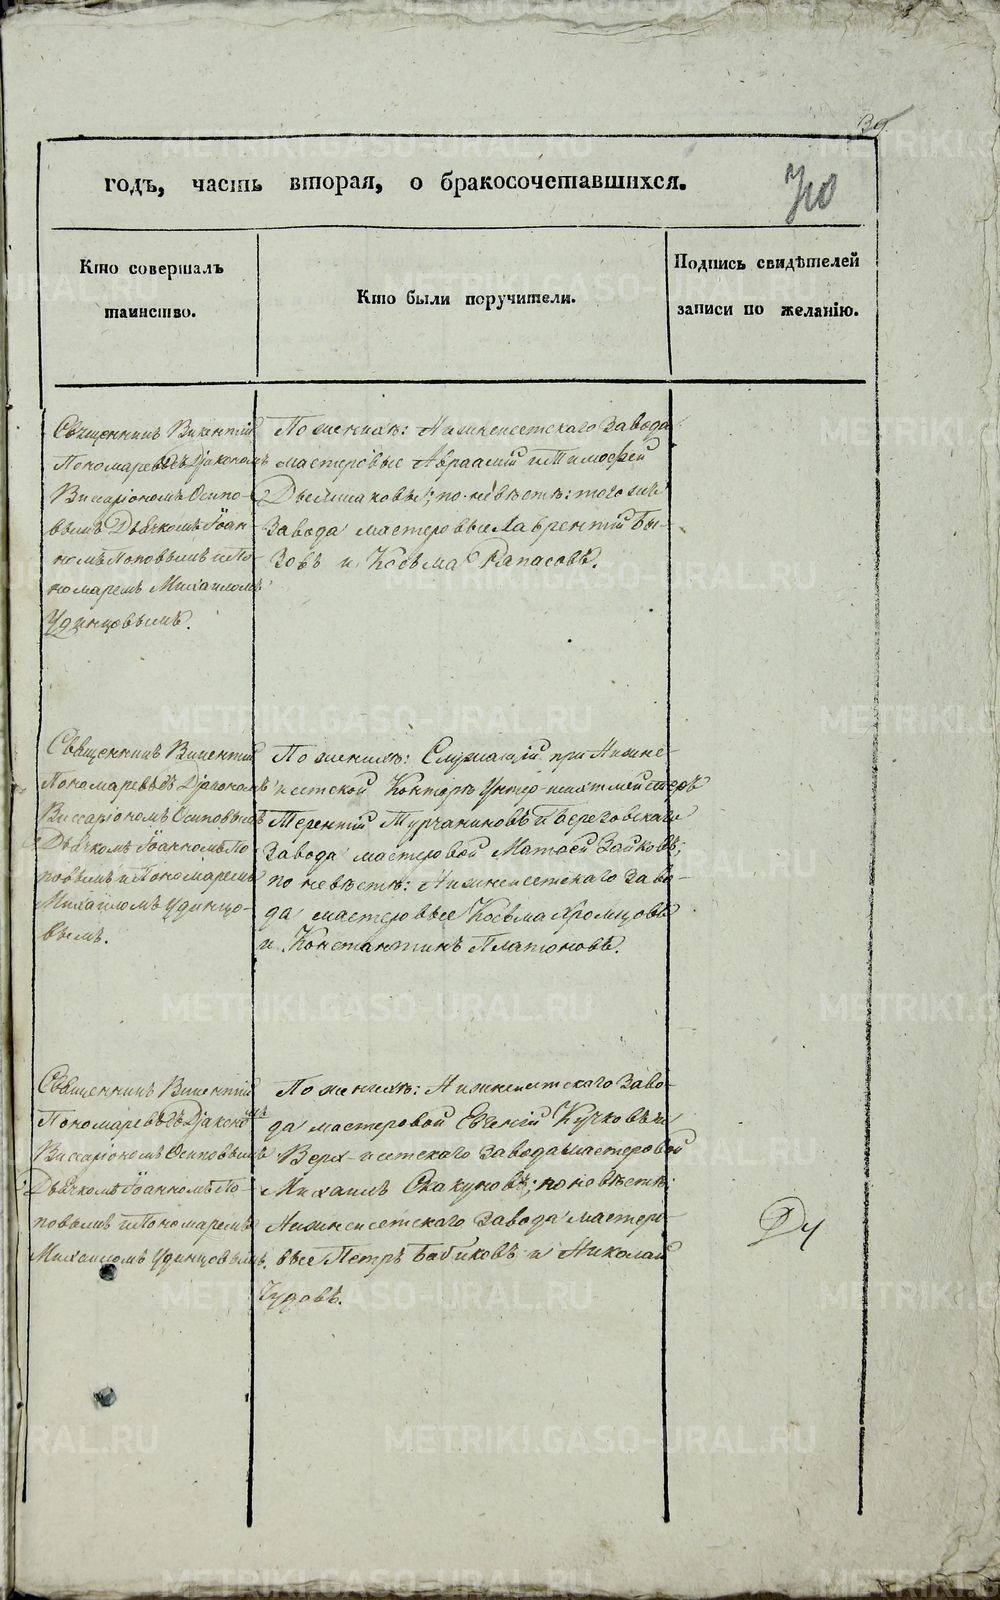 39.
годъ, часть вторая, о бракосочетавшихся.
70
Кто совершалъ
таинство.
Кто были поручители.
Подпись свидѣтелей
записи по желанію.
Священникъ Викентій
Пономаревъ съ Діакономъ
Виссаріономъ Осипо-
вымъ Дьячкомъ Іоан-
номъ Поповымъ и По-
номаремъ Михаиломъ
Удинцовымъ.
По женихѣ: Нижнеисетскаго Завода
мастеровые Авраамій и Тимофей
по невѣстѣ: того же
Завода мастеровые Лаврентій Бы-
зовъ и Козьма
Священникъ Викентій
Пономаревъ съ Діакономъ
Виссаріономъ Осиповымъ
Дьячкомъ Іоанномъ По-
повымъ и Пономаремъ
Михаиломъ Удинцо-
вымъ.
По женихѣ: Служащій при Нижне-
исетской Конторѣ Унтер-шихтмейстеръ
Терентій Турчаниновъ и Березовскаго
Завода мастеровой Матвей Зайковъ;
по невѣстѣ: Нижнеисетскаго Заво-
да мастеровые Козьма Хромцовъ
и Константинъ Платоновъ.
Священникъ Викентій
Пономаревъ съ Діакономъ
Виссаріономъ Осиповымъ
Дьячкомъ Іоанномъ По-
повымъ и Пономаремъ
Михаиломъ Удинцовымъ.
По женихѣ: Нижнеисетскаго Заво-
да мастеровой Евгеній Кучковъ и
Верх-исетскаго Завода мастеровой
Михаилъ по невѣстѣ:
Нижнеисетскаго Завода мастеро-
вые Петръ Бабиковъ и Николай
Чудовъ.
METRIKI.GASO-URAL.RU